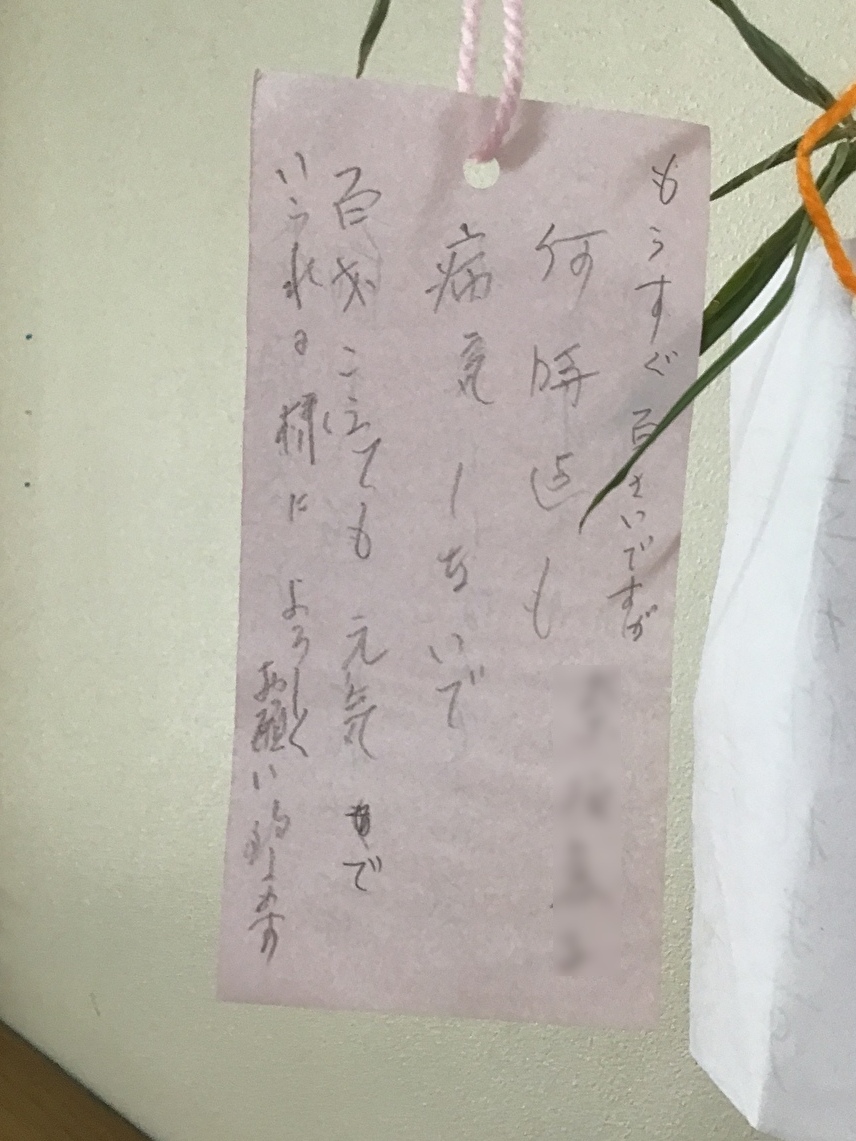 もうすぐ百さいですが
何時迠も
病気しないで
百才こえても元気で
いられる様によろしく
お願い致します